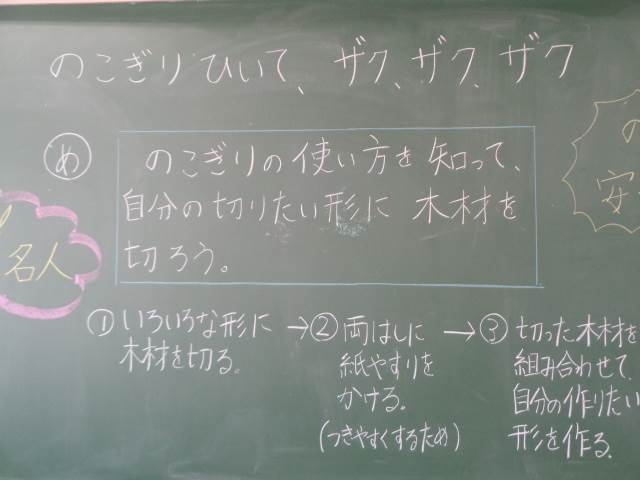 のこぎりひいて、ザク、ザク、ザク
め
のこぎりの使い方を知って、
自分の切りたい形に 木材を
切ろう。
名人
の
安
①いろいろな形に
木材を切る。
→②両はしに
紙やすりを
かける。
(つきやすくするため)
→③切った木材を
組み合わせて、
自分の作りたい
形を作る。